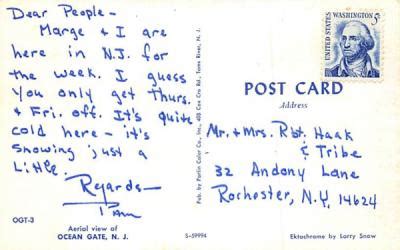 Dear People-
Marge & I are
here in N.J. for
the week. I guess
you only get Thurs.
& Fri. off. It's quite
cold here - it's
snowing just a
Little.
Regards-
Pam
OGT-3
Aerial view of
OCEAN GATE, N. J.
S-59994
Pub. by Parlin Color Co., Inc., 408 Cox Cro Rd., Toms River, N. J.
UNITED STATES
WASHINGTON
5¢
POST CARD
Address
Mr. & Mrs. Rbt. Haak
& Tribe
32 Andony Lane
Rochester, N.Y. 14624
Ektachrome by Larry Snow